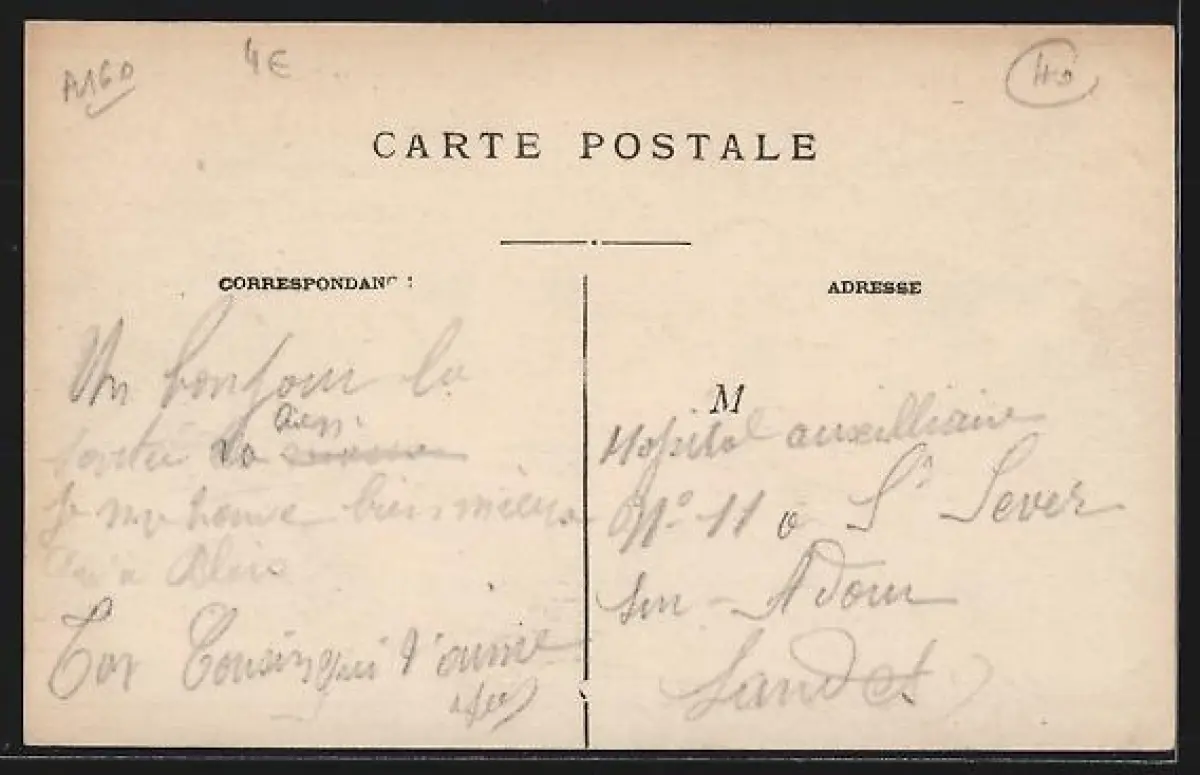 A160
4€
40
CARTE POSTALE
CORRESPONDANC
ADRESSE
Un bonjour la
aussi
santée va
Je me trouve bien mieux
qu'a Blois
Ton Cousin qui t'aume
M
Hopital auxilliaire
N° 11 a St Sever
sur - Adour
Landes